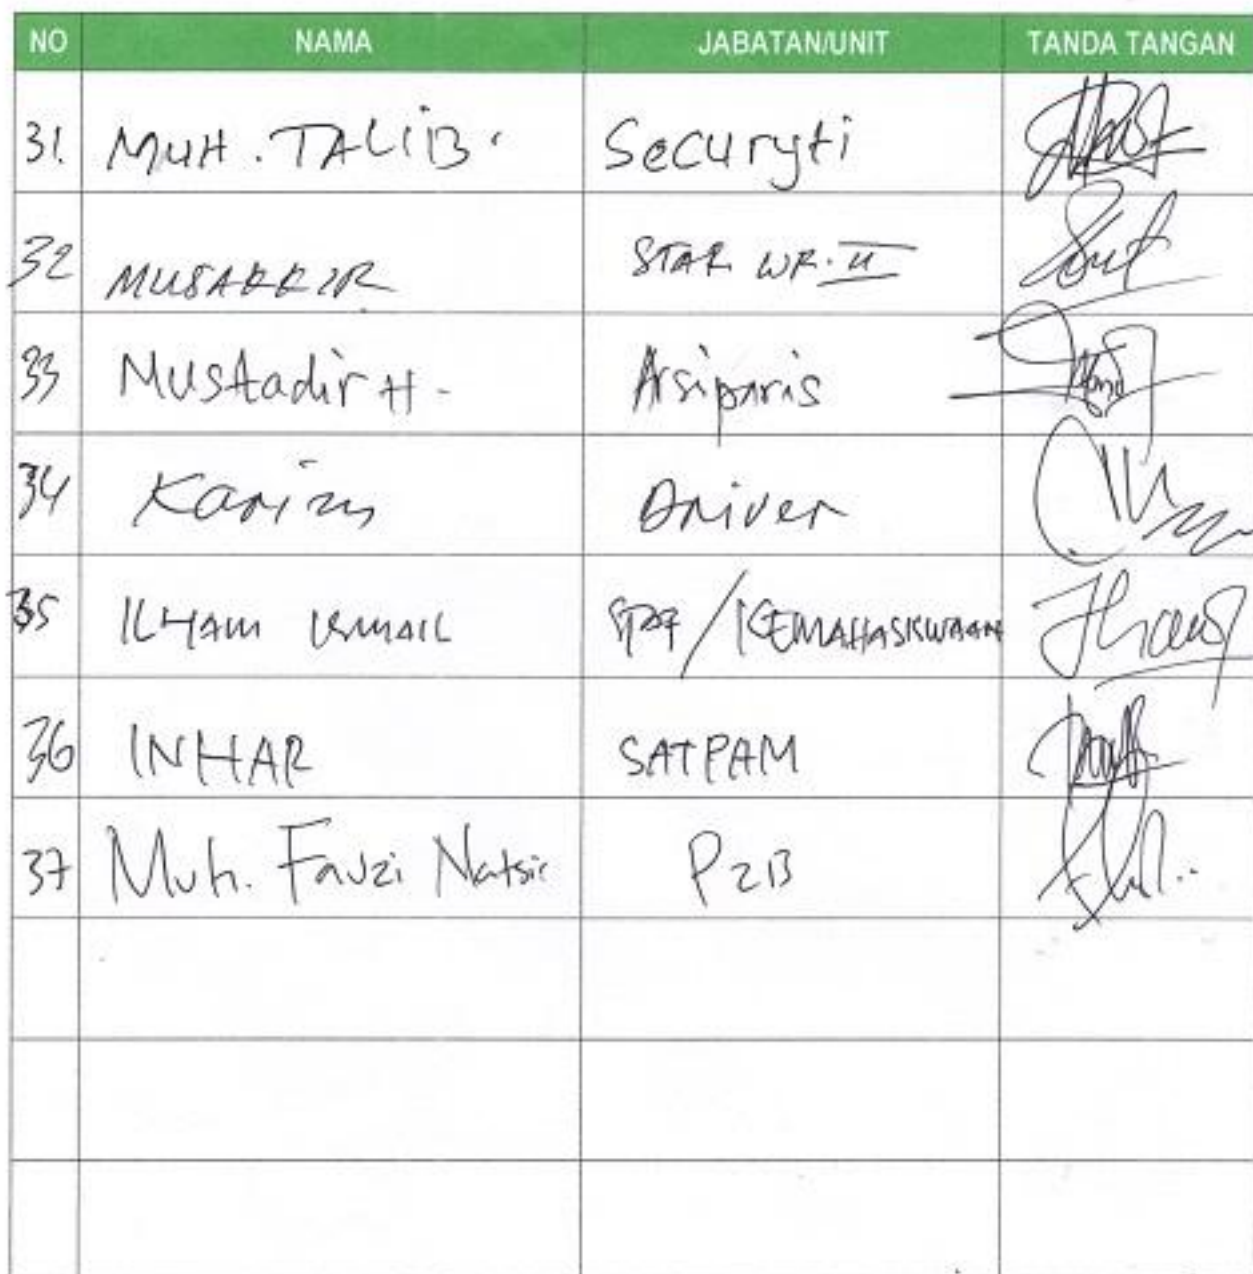 NO NAMA JABATAN/UNIT TANDA TANGAN
31. MUH. TALIB. Securyti
32 MUSAKKIR STAF WR. II
33 Mustadir H. Arsiparis
34 Karim Driver
35 ILHAM ISMAIL STAF/KEMAHASISWAAN
36 INHAR SATPAM
37 Muh. Fauzi Natsir P2B